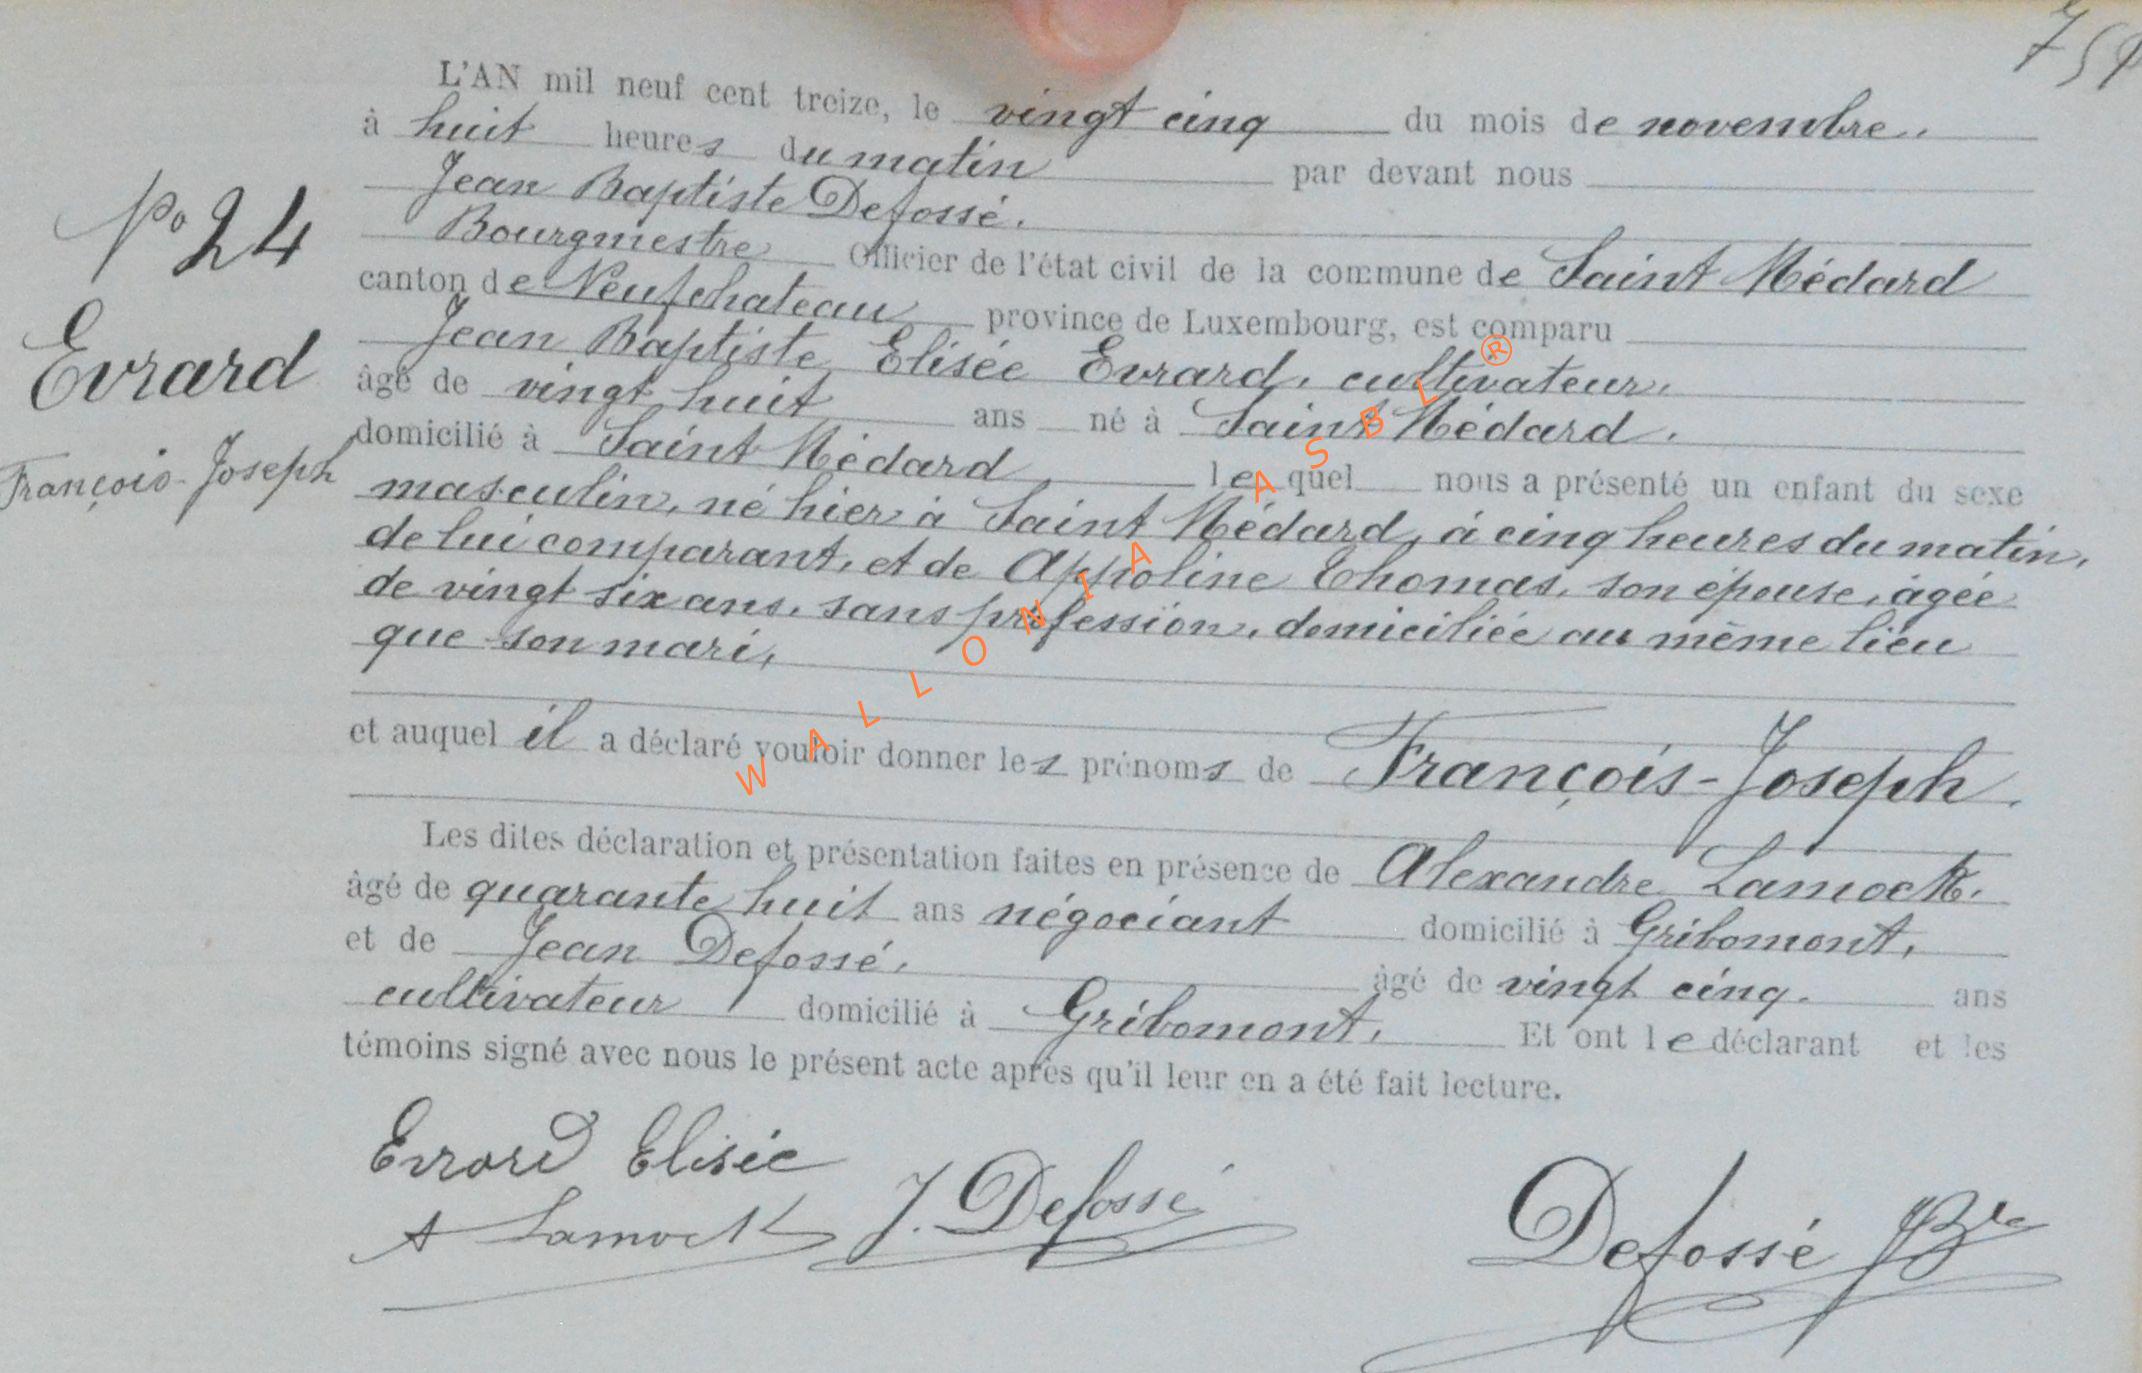 L'AN mil neuf cent treize, le vingt cinq du mois de novembre.
à huit heures du matin par devant nous
Jean Baptiste Defossé.
Bourgmestre Officier de l'état civil de la commune de Saint Médard
canton de Neufchateau province de Luxembourg, est comparu
Jean Baptiste Elisée Evrard, cultivateur,
âgé de vingt huit ans né à Saint Médard.
domicilié à Saint Médard lequel nous a présenté un enfant du sexe
masculin, né hier à Saint Médard, à cinq heures du matin,
de lui comparant, et de Appoline Thomas, son épouse, âgée
de vingt six ans, sans profession, domiciliée au même lieu
que son mari,
et auquel il a déclaré vouloir donner les prénoms de François-Joseph.
Les dites déclaration et présentation faites en présence de Alexandre Lamock.
âgé de quarante huit ans négociant domicilié à Gribomont,
et de Jean Defossé, âgé de vingt cinq. ans
cultivateur domicilié à Gribomont, Et ont le déclarant et les
témoins signé avec nous le présent acte après qu'il leur en a été fait lecture.
No 24
Evrard
François-Joseph
Evrard Elisée
A Lamock J. Defossé
Defossé JBte
WALLONIA ASBL ®